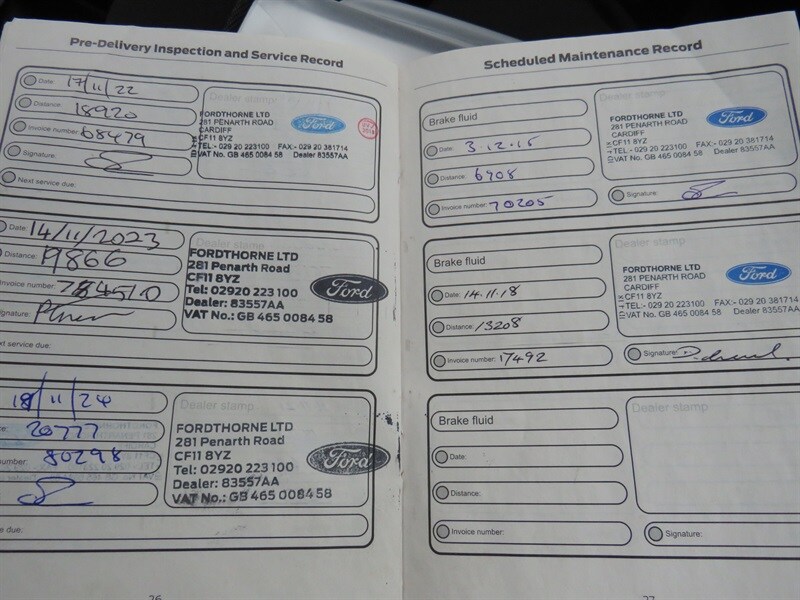 Pre-Delivery Inspection and Service Record
Date: 17/11/22
Distance: 18920
Invoice number: 68479
Signature:
Next service due:
Dealer stamp
FORDTHORNE LTD
281 PENARTH ROAD
CARDIFF
CF11 8YZ
TEL:- 029 20 223100 FAX:- 029 20 381714
VAT No. GB 465 0084 58 Dealer 83557AA
Ford
Date: 14/11/2023
Distance: 19866
Invoice number:
Signature:
next service due:
Dealer stamp
FORDTHORNE LTD
281 Penarth Road
CF11 8YZ
Tel: 02920 223 100
Dealer: 83557AA
VAT No: GB 465 0084 58
Ford
18/11/24
ce: 20777
number: 80298
e due:
Dealer stamp
FORDTHORNE LTD
281 Penarth Road
CF11 8YZ
Tel: 02920 223 100
Dealer: 83557AA
VAT No.: GB 465 0084 58
Ford
26
Scheduled Maintenance Record
Brake fluid
Date: 3.12.15
Distance: 6908
Invoice number: 70205
Dealer stamp
FORDTHORNE LTD
281 PENARTH ROAD
CARDIFF
CF11 8YZ
TEL:- 029 20 223100 FAX:- 029 20 381714
VAT No. GB 465 0084 58 Dealer 83557AA
Ford
Signature:
Brake fluid
Date: 14.11.18
Distance: 13208
Invoice number: 17492
Dealer stamp
FORDTHORNE LTD
281 PENARTH ROAD
CARDIFF
CF11 8YZ
TEL:- 029 20 223100 FAX:- 029 20 381714
VAT No. GB 465 0084 58 Dealer 83557AA
Ford
Signature:
Brake fluid
Date:
Distance:
Invoice number:
Dealer stamp
Signature:
27